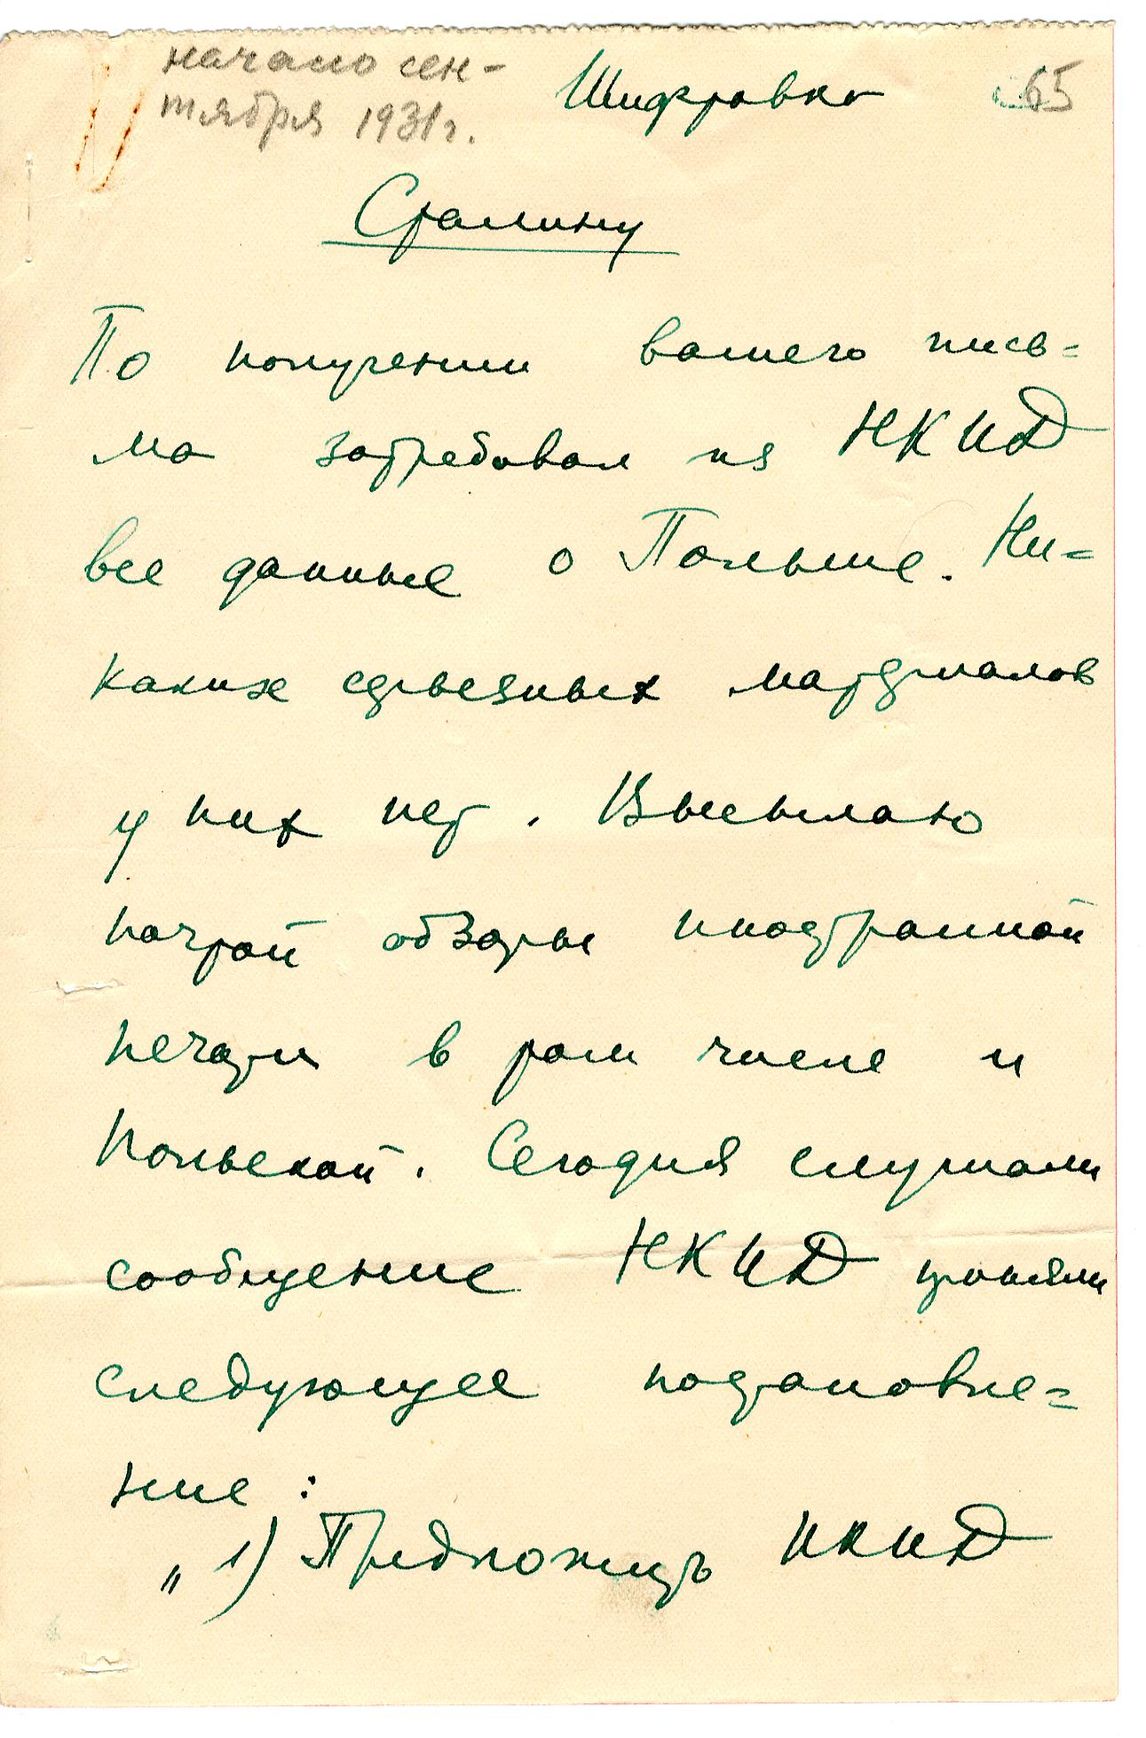 начало сен-
тября 1931 г.
Шифровка
65
Сталину
По получении вашего пись=
ма затребовал из НКИД
все данные о Польше. Ни=
каких серьезных материалов
у них нет. Высылаю
почтой обзоры иностранной
печати в том числе и
польской. Сегодня слушали
сообщение НКИД приняли
следующее постановле=
ние:
„1) Предложить НКИД